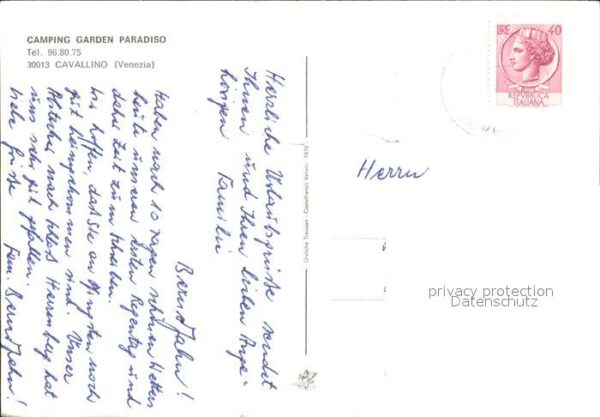 CAMPING GARDEN PARADISO
Tel. 96.80.75
30013 CAVALLINO (Venezia)
Herzliche Urlaubsgrüße sendet
Ihnen und Ihren lieben Ange-
hörigen Familie
Bernd Jahn!
Haben nach 10 Tagen schönen Wetters
heute unseren ersten Regentag und
daher Zeit zum Schreiben.
Wir hoffen, daß Sie an Pfingsten noch
gut heimgekommen sind. Unser
nach Schloß Herrenberg hat
uns sehr gut gefallen.
Viele Grüße Fam. Bernd Jahn!
Grafiche Trevisan - Castelfranco Veneto - 1970
LIRE 40
REPVBBLICA
ITALIANA
Herrn
privacy protection
Datenschutz